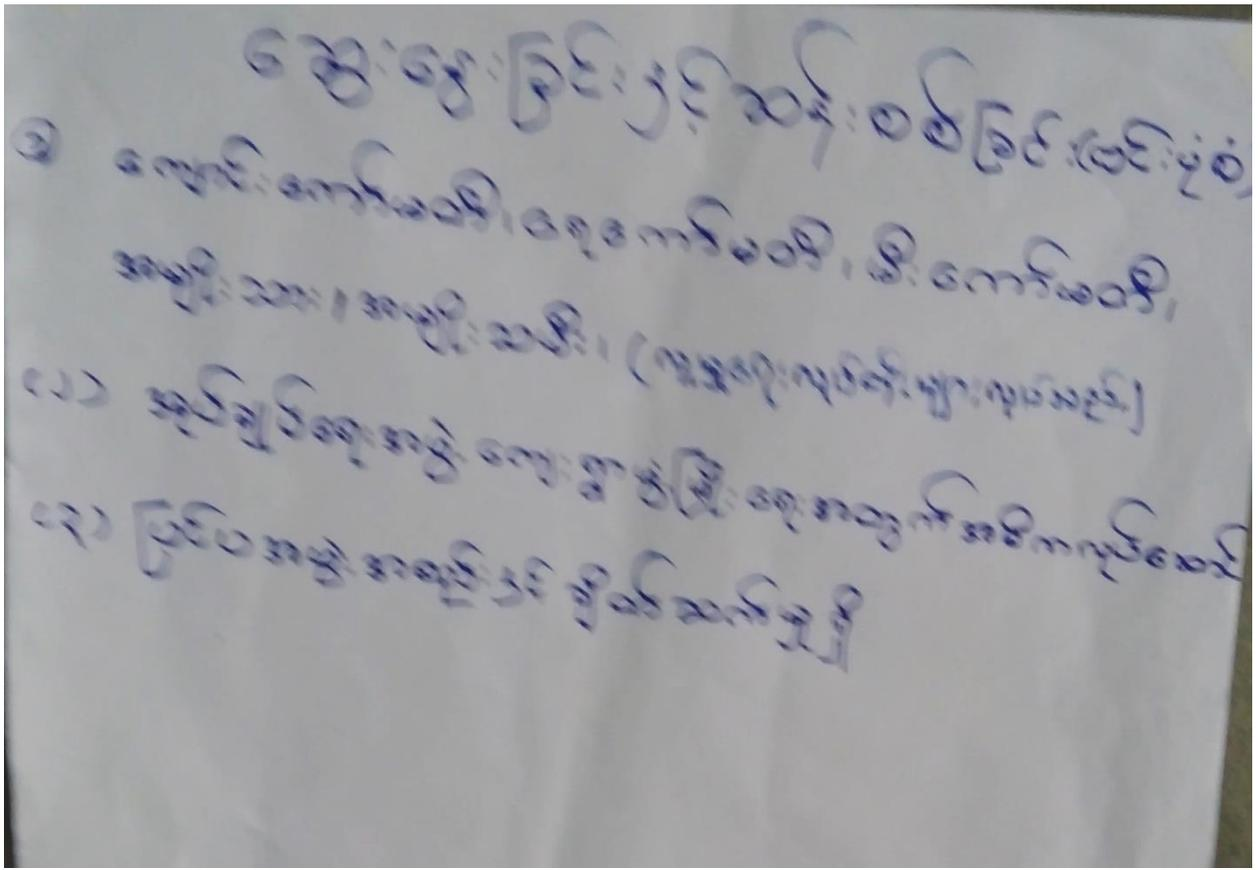 ဆွေးနွေးခြင်းနှင့် ဆန်းစစ်ခြင်း (ဗင်းပုံစံ)
၁ ကျောင်းကော်မတီ၊ ရေကော်မတီ၊ မီးကော်မတီ၊
အမျိုးသား၊ အမျိုးသမီး၊ (လူမှုရေးလုပ်ငန်းများလုပ်သည်)
(၁) အုပ်ချုပ်ရေးအဖွဲ့ ကျေးရွာဖွံ့ဖြိုးရေးအတွက်အဓိကလုပ်ဆောင်
(၃) ပြင်ပအဖွဲ့အစည်းနှင့် ချိတ်ဆက်မှုရှိ